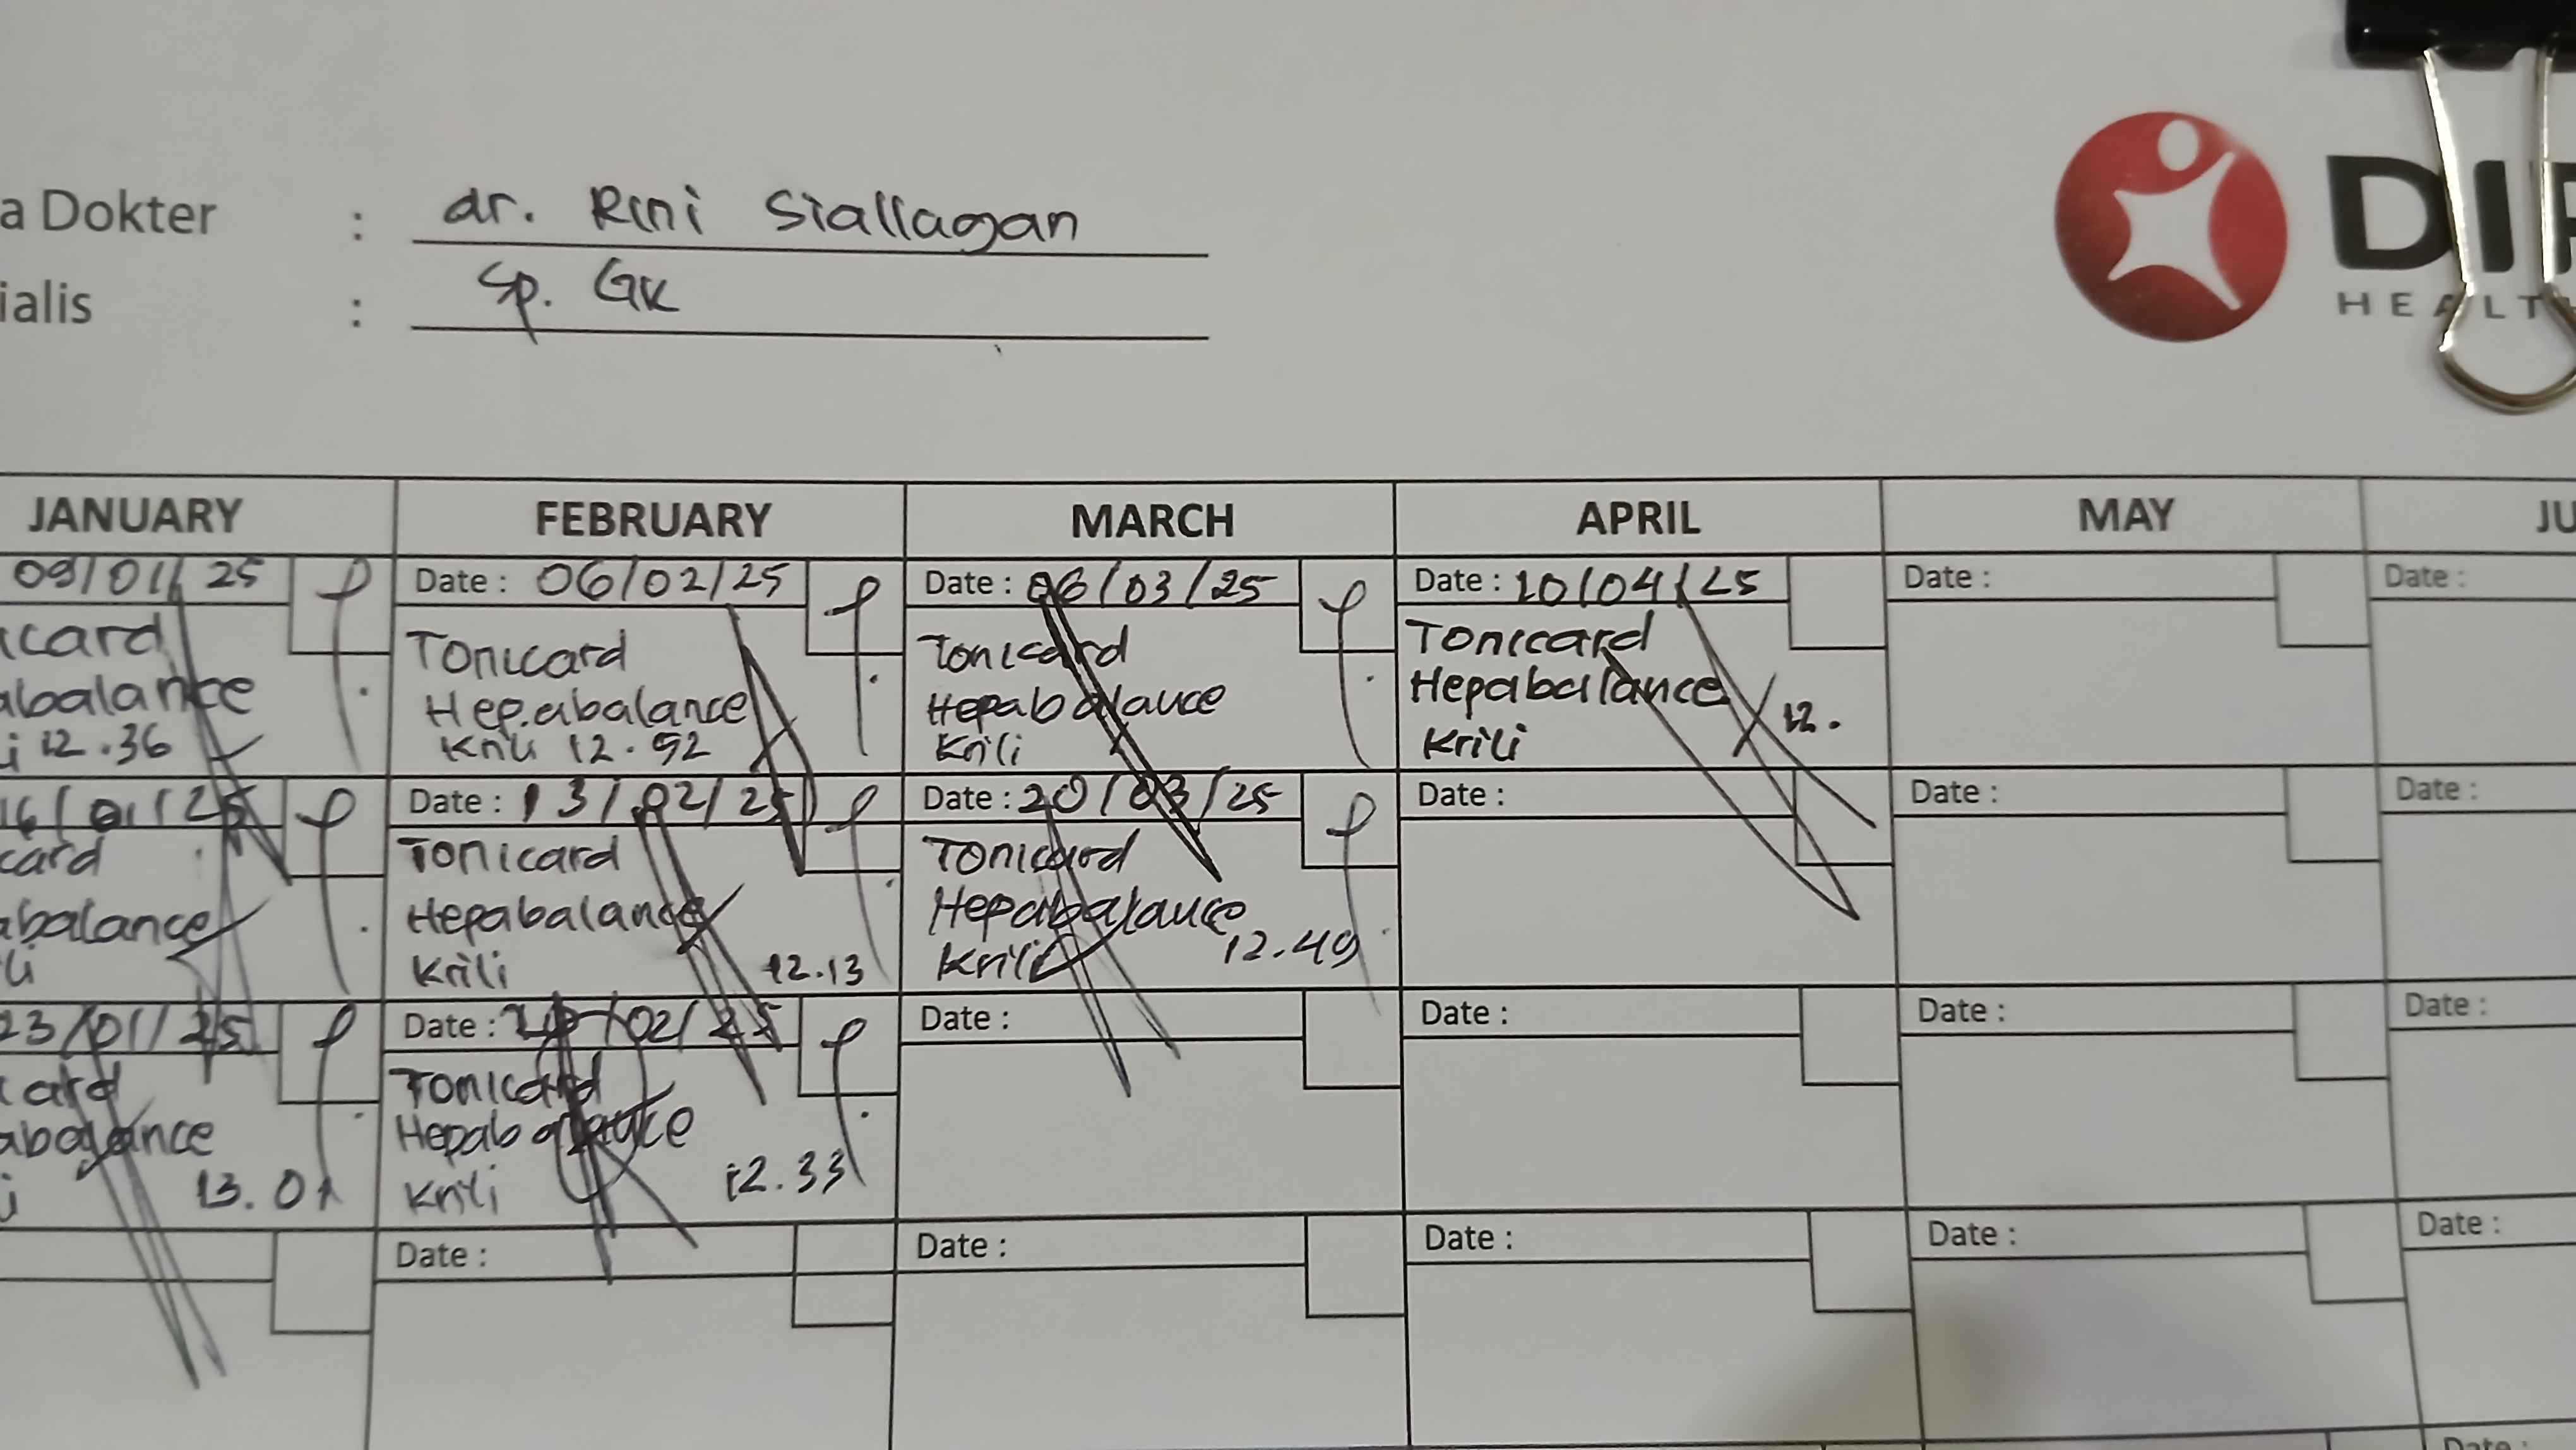 a Dokter : dr. Rini Siallagan
ialis : Sp. GK
DI
HEALT
JANUARY FEBRUARY MARCH APRIL MAY JU
09/01/25 Date : 06/02/25 Date : 06/03/25 Date : 10/04/25 Date : Date :
icard Tonicard Tonicard Tonicard
abalance Hepabalance Hepabalance Hepabalance 12.
i 12.36 Krili 12.52 Krili Krili
16/01/25 Date : 13/02/25 Date : 20/03/25 Date : Date : Date :
card Tonicard Tonicard
abalance Hepabalance Hepabalance
li Krili 12.13 Krili 12.49
23/01/25 Date : /02/25 Date : Date : Date : Date :
card Tonicard
abalance Hepabalance
i 13.01 Krili 12.33
Date : Date : Date : Date : Date :
Date :